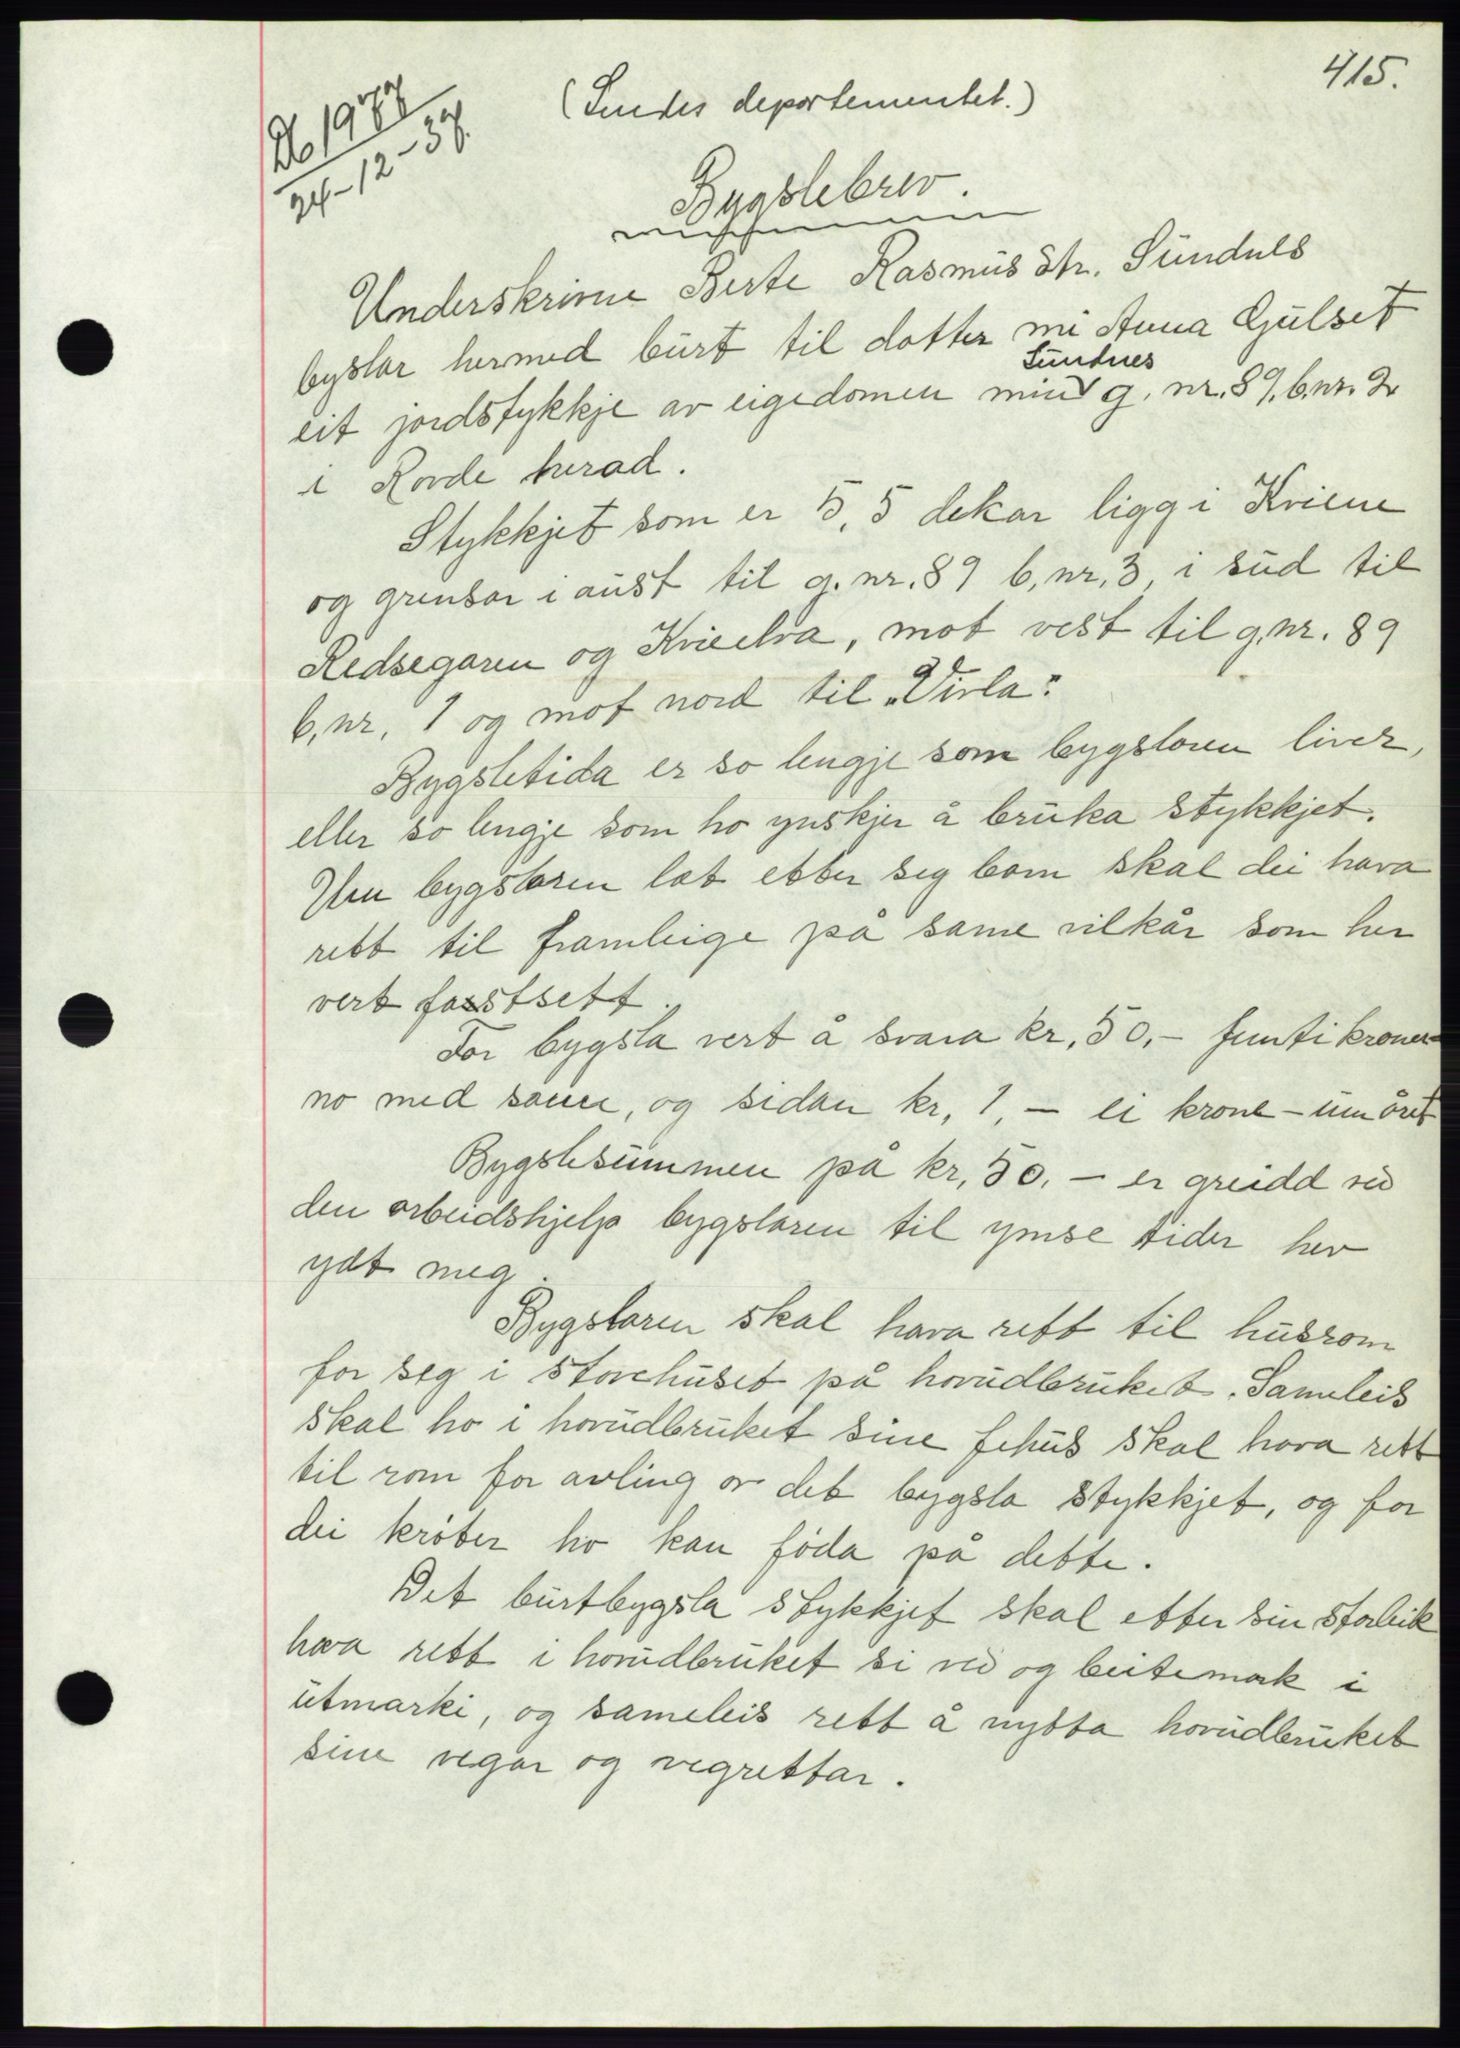 415.
(Sendes departementet.)
Db 1977
24-12-37.
Bygslebrev.
Underskrivne Berte Rasmus dtr. Sundnes
byslar hermed burt til dotter mi Anna Gjulset
Sundnes
eit jordstykkje av eigedomen min g. nr. 89, b.nr. 2
i Rovde herad.
Stykkjet som er 5,5 dekar ligg i Kviene
og grensar i aust til g. nr. 89 b. nr. 3, i sud til
Redsegaren og Kvieelva, mot vest til g.nr. 89
b. nr. 1 og mot nord til „Virla".
Bygsletida er so lengje som bygslaren liver,
eller so lengje som ho ynskjer å bruka stykkjet.
Um bygslaren let etter seg born skal dei hava
rett til framleige på same vilkår som her
vert fastsett.
For bygsla vert å svara kr. 50,- femti kroner-
no med same, og sidan kr. 1,- ei krone - um året
Bygslesummen på kr. 50.- er greidd ved
den arbeidshjelp bygslaren til ymse tider hev
ydt meg.
Bygslaren skal hava rett til husrom
for seg i stovehuset på hovudbruket. Sameleis
skal ho i hovudbruket sine fehus skal hava rett
til rom for avling av det bygsla stykkjet, og for
dei krøter ho kan føda på dette.
Det burtbygsla stykkjet skal etter sin storleik
hava rett i hovudbruket si ved og beitemark i
utmarki, og sameleis rett å nytta hovudbruket
sine vegar og vegrettar.